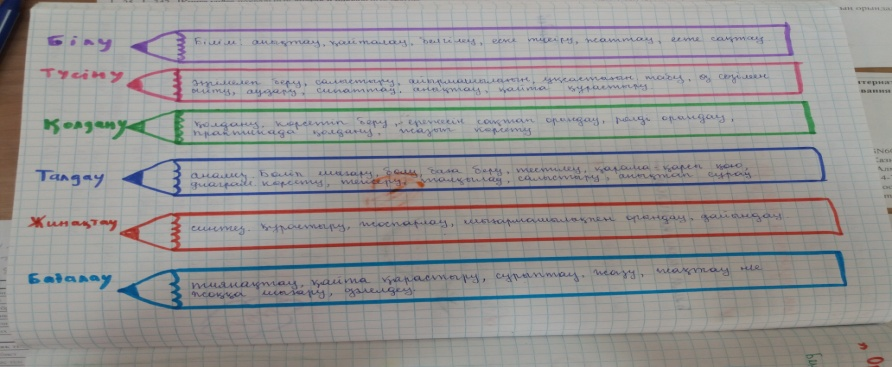 Білу
Білім: анықтау, қайталау, белгілеу, еске түсіру, жаттау, есте сақтау
Түсіну
беру, салыстыру, айырмашылығын, ұқсастығын табу, өз сөзімен
айту, аудару, сипаттау, анықтау, қайта құрастыру.
Қолдану
Қолдану, көрсетіп беру, ережесін сақтап орындау, рөлді орындау,
практикада қолдану, жазып көрсету
Талдау
анализ. Бөліп шығару, бөлу, баға беру, тестілеу, қарама-қарсы қою,
диаграмма көрсету, тексеру, талқылау, салыстыру, анықтап сұрау
Жинақтау
синтез. Құрастыру, жоспарлау, шығармашылықпен орындау, дайындау
Бағалау
тиянақтау, қайта қарастыру, сұраптау, жазу, жақтау не
жоққа шығару, дәлелдеу.